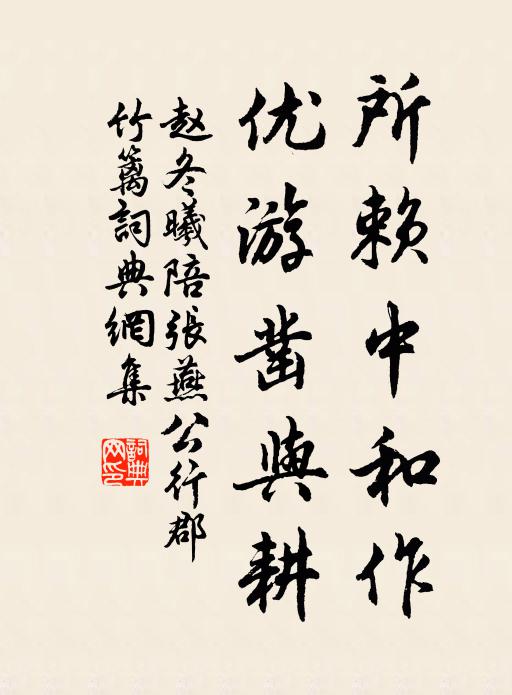 所赖中和作
优游凿與耕
赵冬曦陪張燕公行郡
竹篱詞典網集
詞典网印